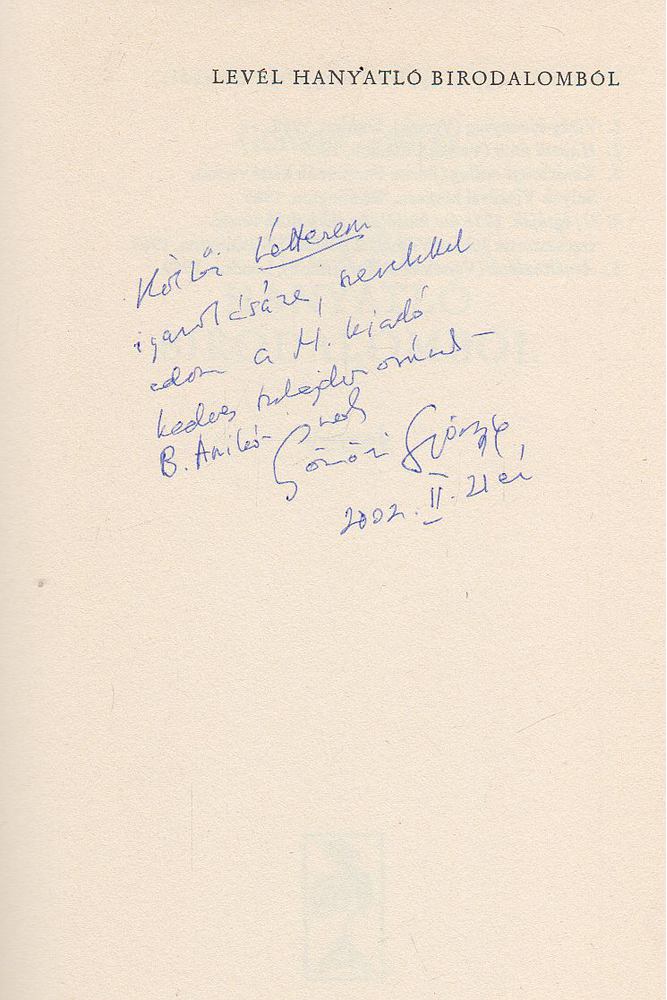 LEVÉL HANYATLÓ BIRODALOMBÓL
Költői Létterem
igazolására, szeretettel
adom a M. kiadó
kedves tulajdonosának
B. Anikónak
Gömöri György
2002. II. 21 én